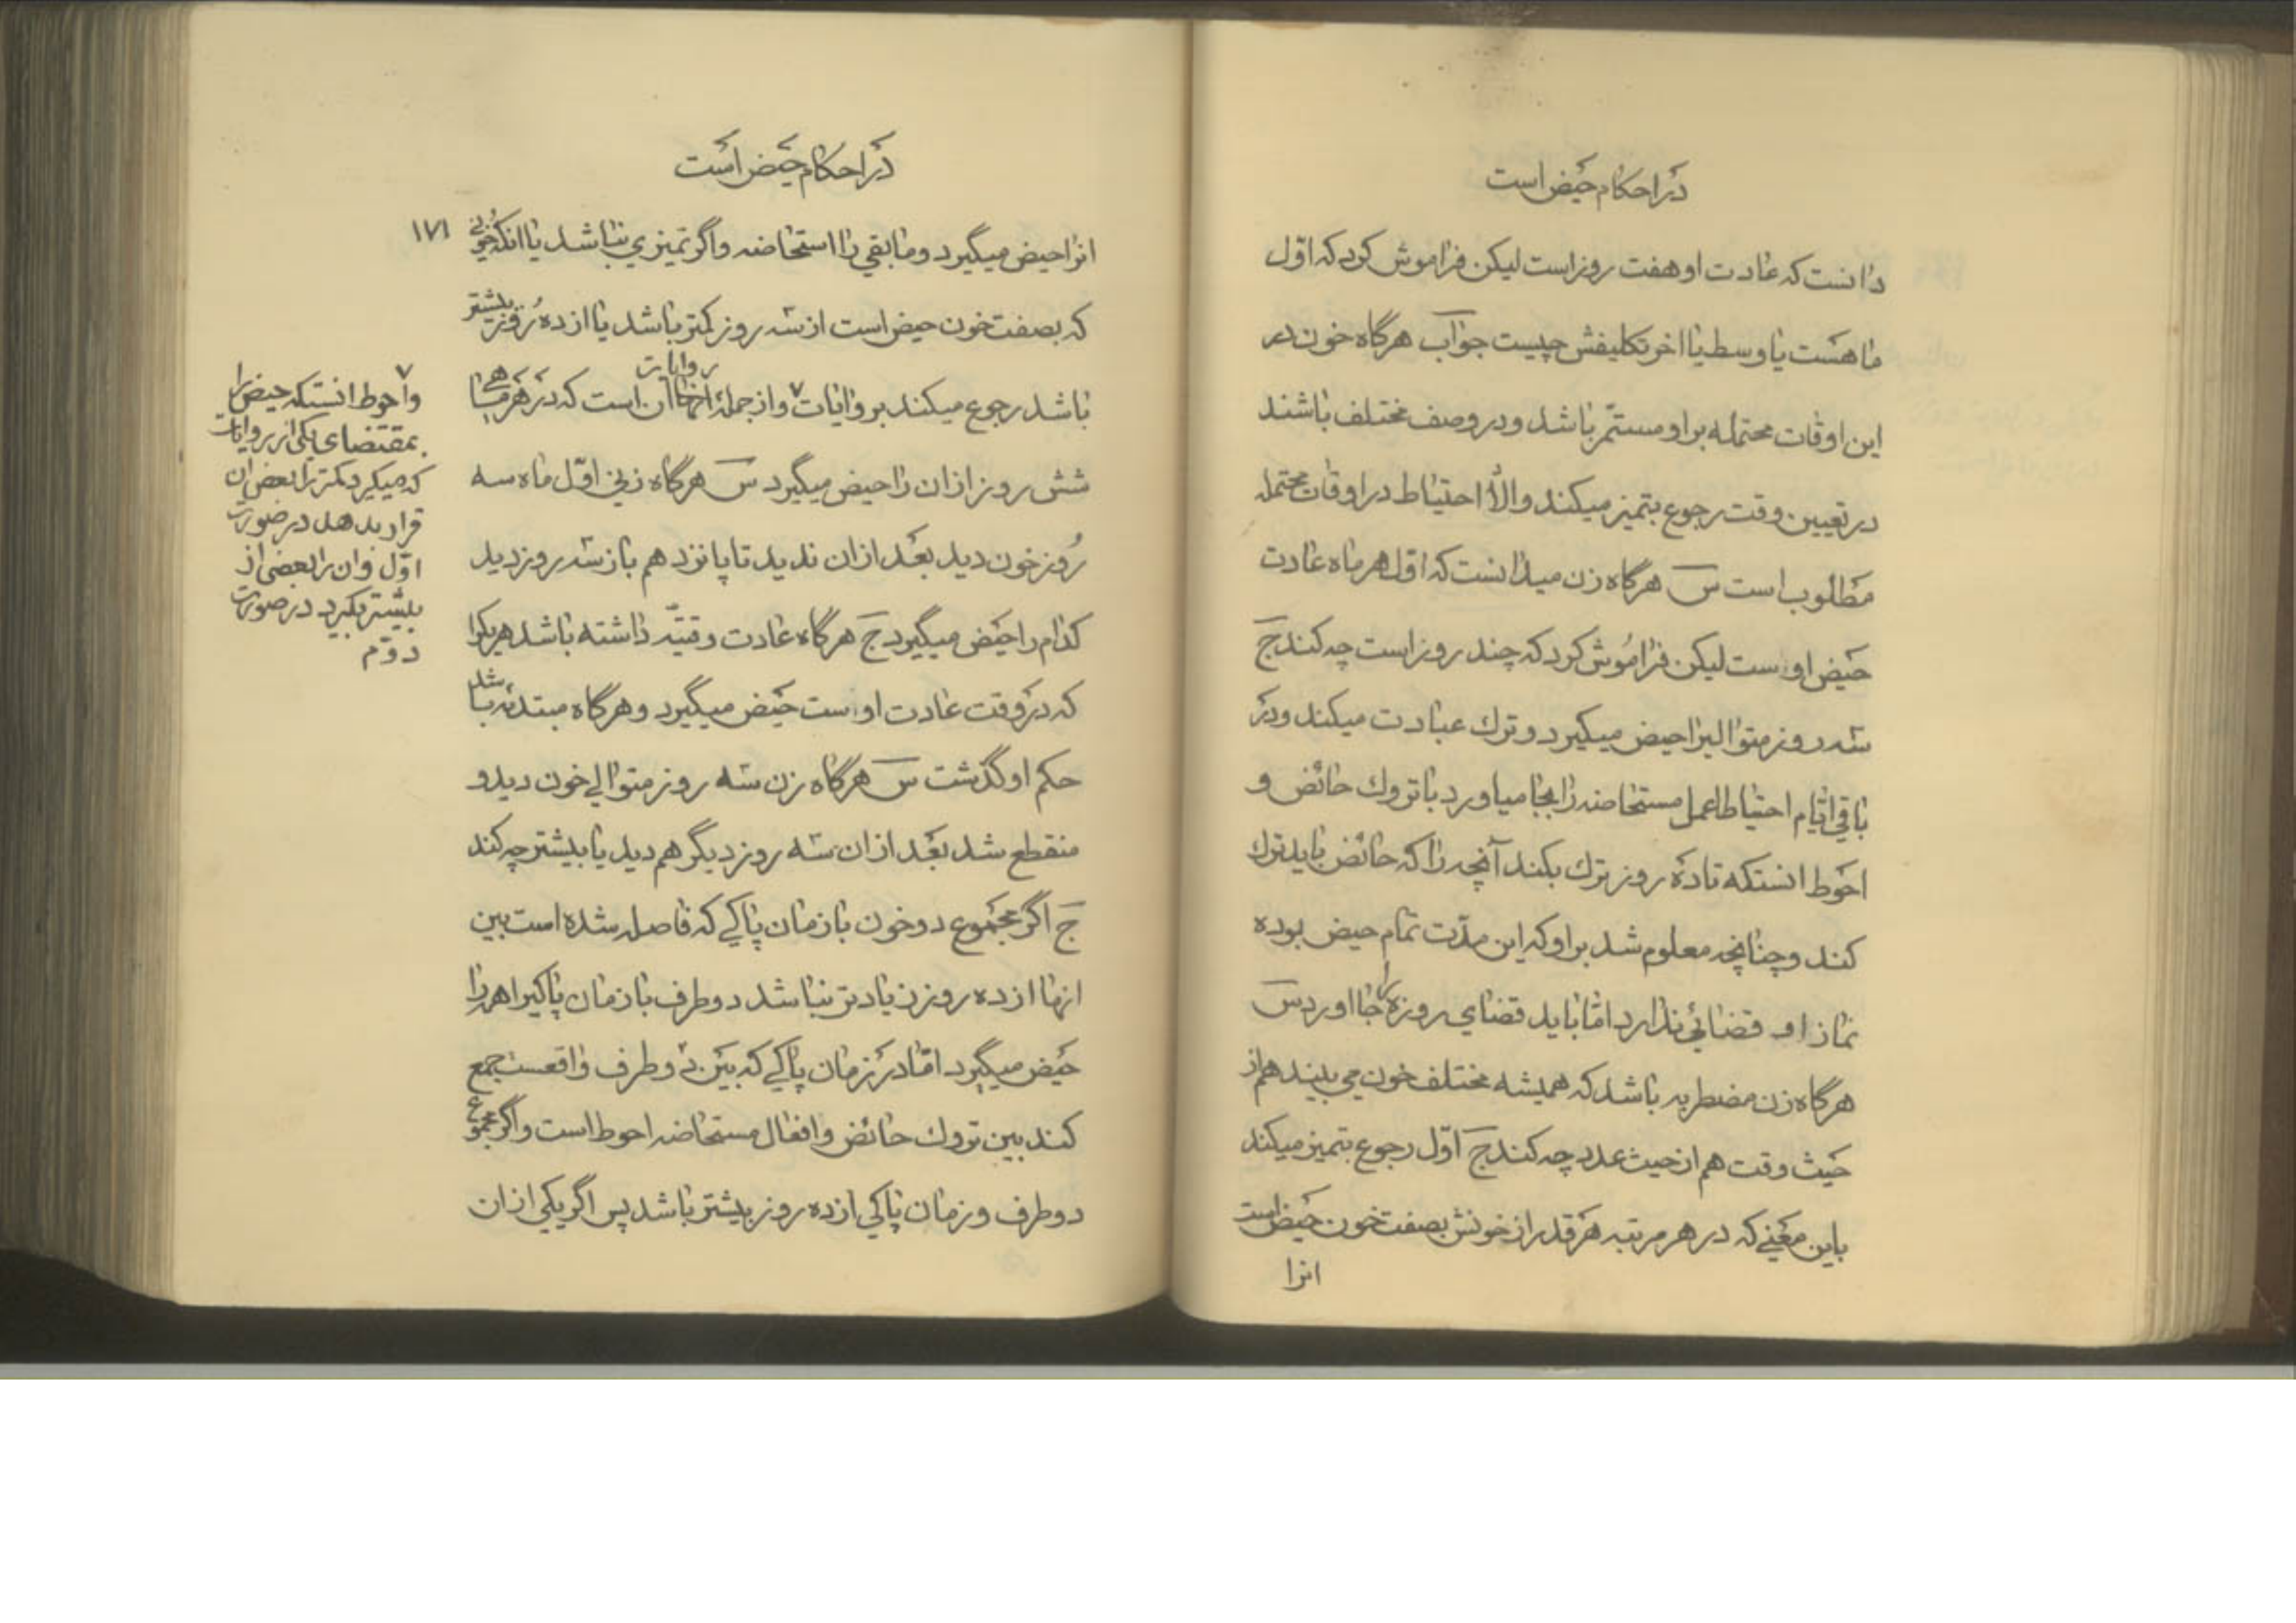 در احکام حیض است
دانست که عادت او هفت روز است لیکن فراموش کرد که اوّل
ماهست یا وسط یا اخر تکلیفش چیست جواب هرگاه خون در
این اوقات محتمله بر او مستمّر باشد و در وصف مختلف باشند
در تعیین وقت رجوع بتمیز میکند والّا احتیاط در اوقات محتمله
مطلوب است س هرگاه زن میدانست که اوّل هر ماه عادت
حیض اوست لیکن فراموش کرد که چند روز است چه کند ج
سه روز متوالیرا حیض میگیرد و ترك عبادت میکند و در
باقی ایّام احتیاطا عمل مستحاضه را بجا میاورد با تروك حائض و
احوط انستکه تا ده روز ترك بکند آنچه را که حائض باید ترك
کند و چنانچه معلوم شد بر او که این مدّت تمام حیض بوده
نماز او قضائی ندارد امّا باید قضای روزه را بجا اورد س
هرگاه زن مضطربه باشد که همیشه مختلف خون می بیند هم از
حیث وقت هم از حیث عدد چه کند ج اوّل رجوع بتمیز میکند
باین معنی که در هر مرتبه هر قدر از خونش بصفت خون حیض است
انرا
در احکام حیض است
۱۷۱
انرا حیض میگیرد و مابقی را استحاضه و اگر تمیزی نباشد یا انکه خونی
که بصفت خون حیض است از سه روز کمتر باشد یا از ده روز بیشتر
باشد رجوع میکند بروایات ۷ و از جملهٔ روایات ان است که در هر ماهی
شش روز ازان را حیض میگیرد س هرگاه زنی اوّل ماه سه
روز خون دید بعد ازان ندید تا پانزدهم باز سه روز دید
کدام را حیض میگیرد ج هرگاه عادت وقتیّه داشته باشد هریکرا
که در وقت عادت اوست حیض میگیرد و هرگاه مبتدئه باشد
حکم او گذشت س هرگاه زن سه روز متوالی خون دید و
منقطع شد بعد ازان سه روز دیگر هم دید یا بیشتر چه کند
ج اگر مجموع دو خون با زمان پاکی که فاصله شده است بین
انها از ده روز زیادتر نباشد دو طرف با زمان پاکیرا همه را
حیض میگیرد امّا در زمان پاکی که بین دو طرف واقعست جمع
کند بین تروك حائض و افعال مستحاضه احوط است و اگر مجموع
دو طرف و زمان پاکی از ده روز بیشتر باشد پس اگر یکی ازان
۷
و احوط انستکه حیض را
بمقتضای یکی از روایات
که میگیرد کمتر را بعض ان
قرار بدهد در صورت
اوّل و ان را بعضی از
بیشتر بگیرد در صورت
دوّم